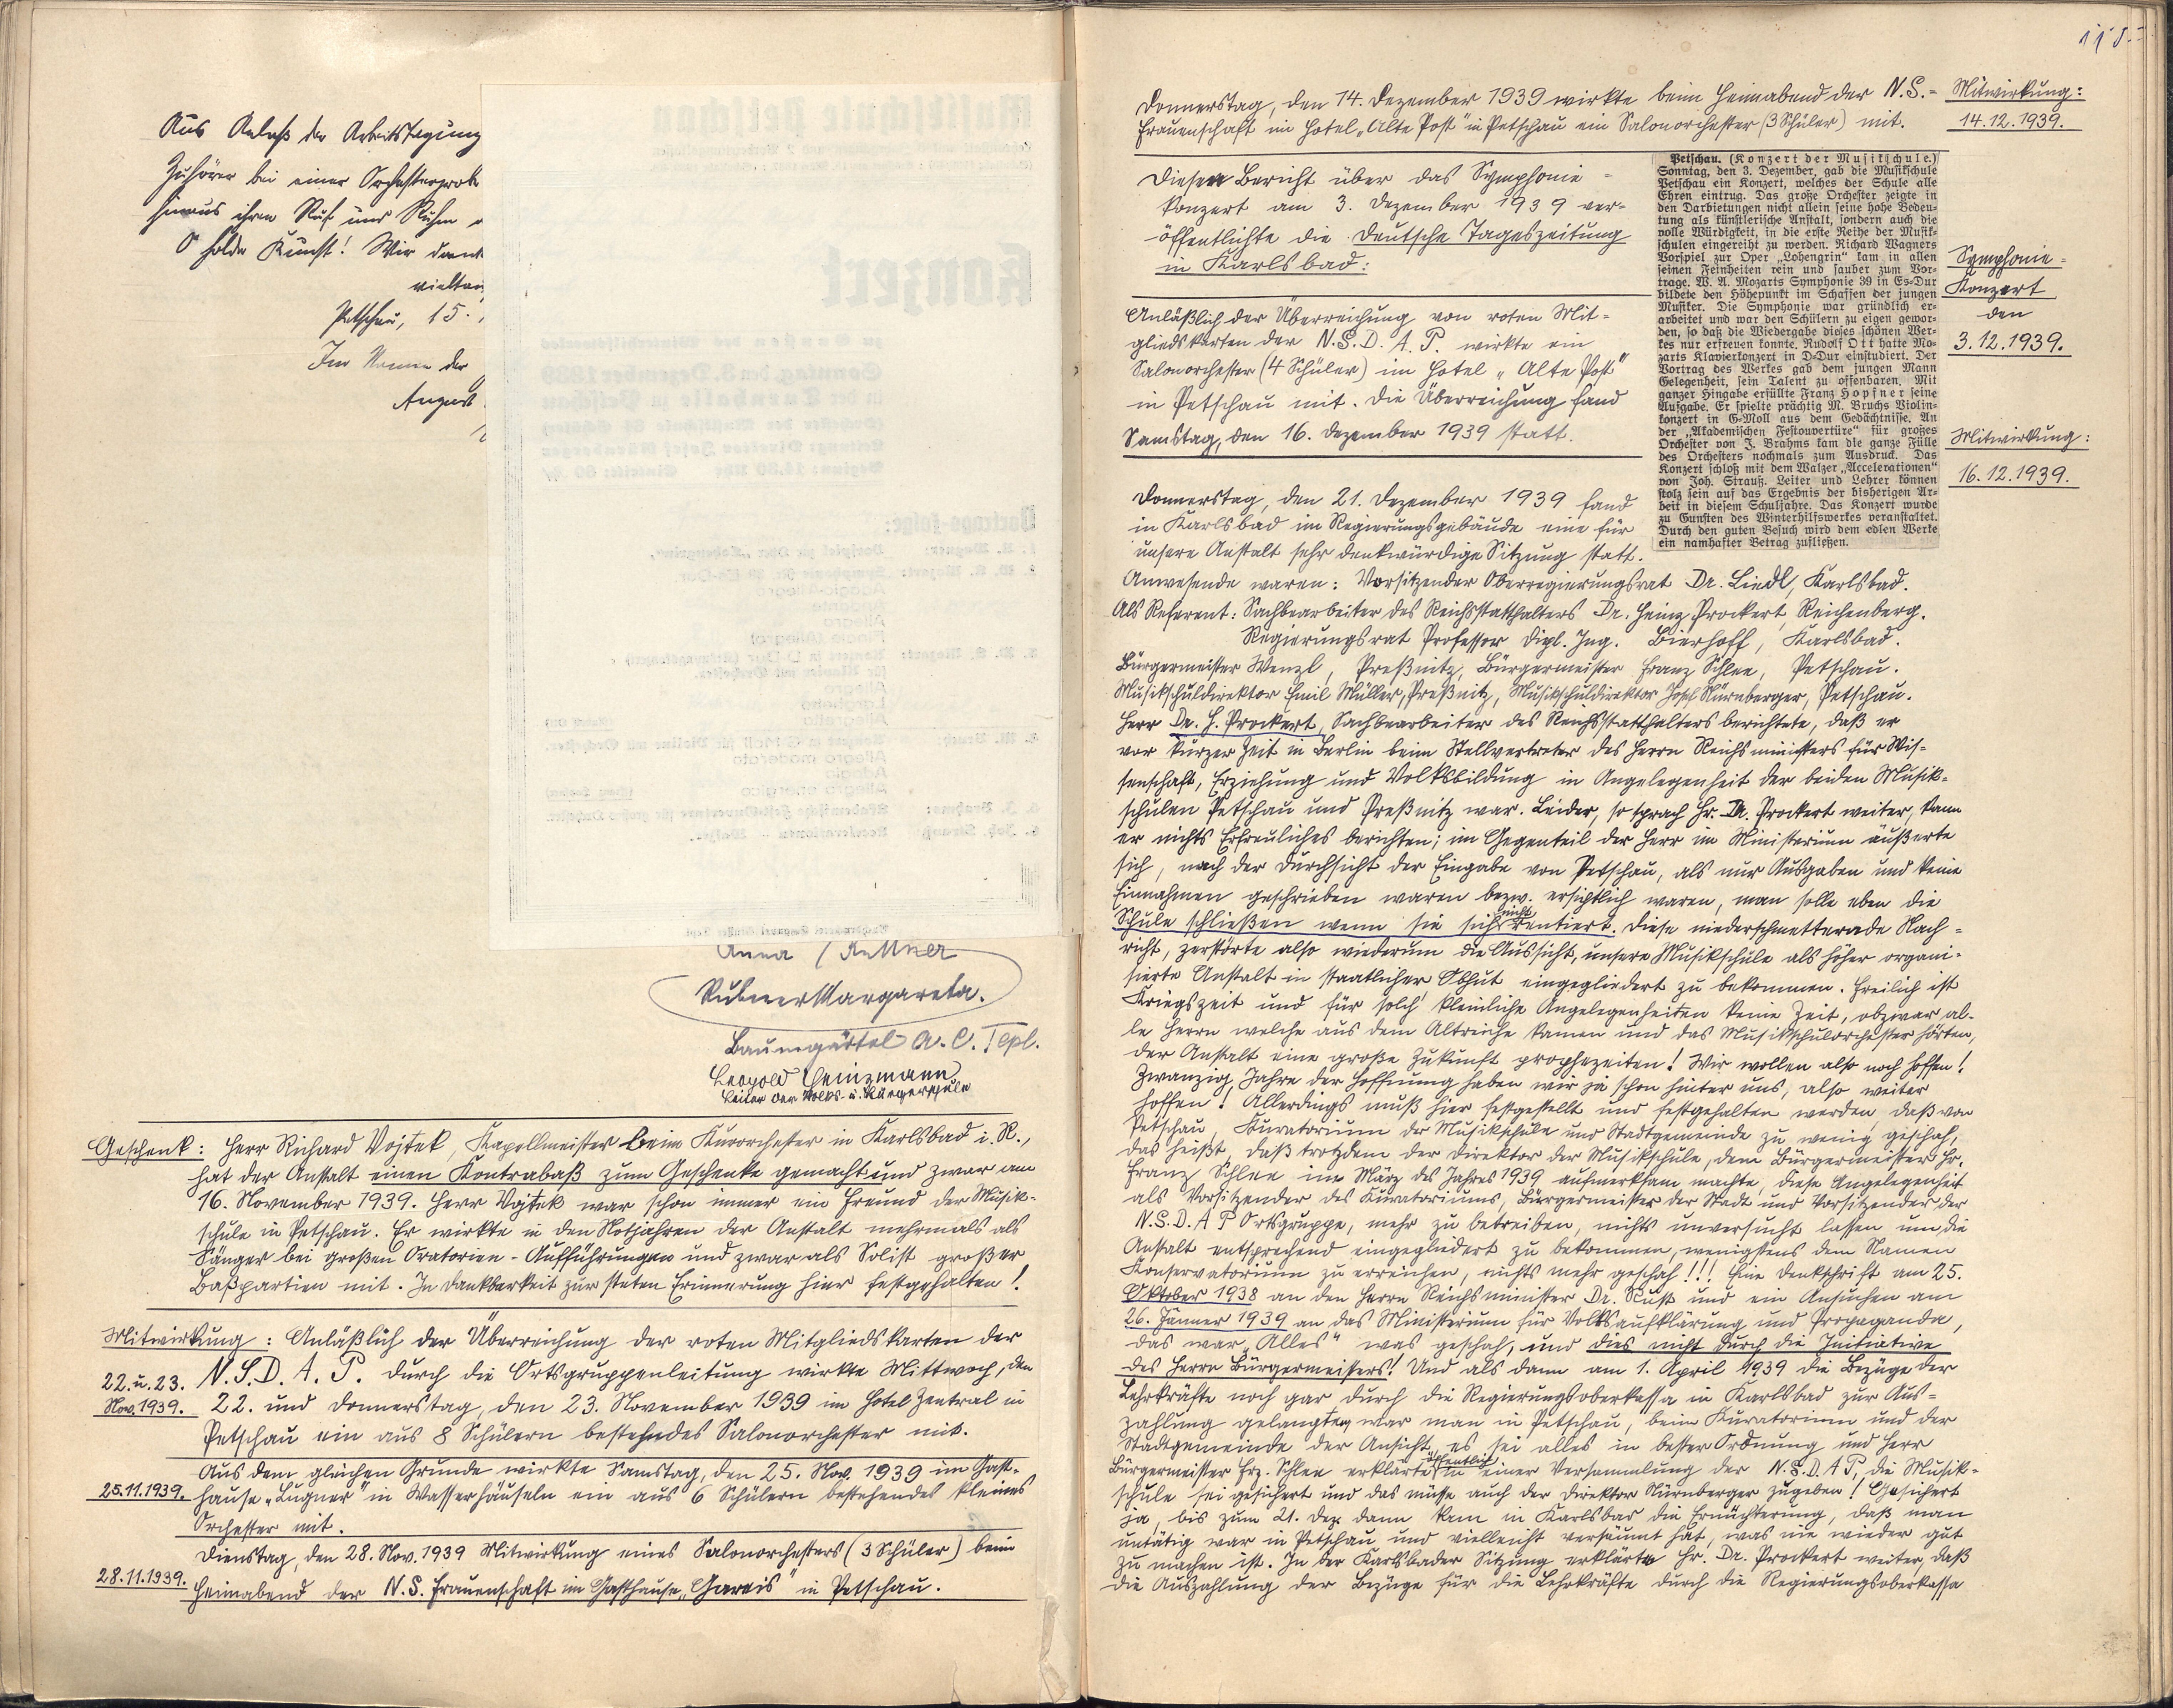 Aus Anlaß der Arbeitstagung
Zuhörer bei einer Orchesterprobe
hinaus ihren Ruf und Ruhm
O holde Kunst! Wir danken
Petschau, 15.
Im Namen der
August
Anna
Margareta.
Baumgärtel A. C. Tepl.
Leopold Heinzmann
Leiter der Volks- u. Bürgerschule
Geschenk: Herr Richard Vojtek, Kapellmeister beim Kurorchester in Karlsbad i. R.,
hat der Anstalt einen Kontrabaß zum Geschenke gemacht und zwar am
16. November 1939. Herr Vojtek war schon immer ein Freund der Musik-
schule in Petschau. Er wirkte in den Notjahren der Anstalt mehrmals als
Sänger bei großen Oratorien-Aufführungen und zwar als Solist großer
Baßpartien mit. In Dankbarkeit zur steten Erinnerung hier festgehalten!
Mitwirkung: Anläßlich der Überreichung der roten Mitgliedskarten der
22. u. 23. N.S.D.A.P. durch die Ortsgruppenleitung wirkte Mittwoch, den
Nov. 1939. 22. und Donnerstag, den 23. November 1939 im Hotel Zentral in
Petschau ein aus 8 Schülern bestehendes Salonorchester mit.
Aus dem gleichen Grunde wirkte Samstag, den 25. Nov. 1939 im Gast-
25.11.1939. hause „Lugner" in Wasserhäuseln ein aus 6 Schülern bestehendes kleines
Orchester mit.
Dienstag, den 28. Nov. 1939 Mitwirkung eines Salonorchesters (3 Schüler) beim
28.11.1939. Heimabend der N.S. Frauenschaft im Gasthause „Gareis" in Petschau.
Donnerstag, den 14. Dezember 1939 wirkte beim Heimabend der N.S.-
Frauenschaft im Hotel „Alte Post" in Petschau ein Salonorchester (3 Schüler) mit.
Mitwirkung:
14.12.1939.
Diesen Bericht über das Symphonie-
konzert am 3. Dezember 1939 ver-
öffentlichte die Deutsche Tageszeitung
in Karlsbad:
Petschau. (Konzert der Musikschule.)
Sonntag, den 3. Dezember, gab die Musikschule
Petschau ein Konzert, welches der Schule alle
Ehren eintrug. Das große Orchester zeigte in
den Darbietungen nicht allein seine hohe Bedeu-
tung als künstlerische Anstalt, sondern auch die
volle Würdigkeit, in die erste Reihe der Musik-
schulen eingereiht zu werden. Richard Wagners
Vorspiel zur Oper „Lohengrin" kam in allen
seinen Feinheiten rein und sauber zum Vor-
trage. W. A. Mozarts Symphonie 39 in Es-Dur
bildete den Höhepunkt im Schaffen der jungen
Musiker. Die Symphonie war gründlich er-
arbeitet und war den Schülern zu eigen gewor-
den, so daß die Wiedergabe dieses schönen Wer-
kes nur erfreuen konnte. Rudolf Ott hatte Mo-
zarts Klavierkonzert in D-Dur einstudiert. Der
Vortrag des Werkes gab dem jungen Mann
Gelegenheit, sein Talent zu offenbaren. Mit
ganzer Hingabe erfüllte Franz Hopfner seine
Aufgabe. Er spielte prächtig M. Bruchs Violin-
konzert in G-Moll aus dem Gedächtnisse. An
der „Akademischen Festouvertüre" für großes
Orchester von J. Brahms kam die ganze Fülle
des Orchesters nochmals zum Ausdruck. Das
Konzert schloß mit dem Walzer „Accelerationen"
von Joh. Strauß. Leiter und Lehrer können
stolz sein auf das Ergebnis der bisherigen Ar-
beit in diesem Schuljahre. Das Konzert wurde
zu Gunsten des Winterhilfswerkes veranstaltet.
Durch den guten Besuch wird dem edlen Werke
ein namhafter Betrag zufließen.
Symphonie-
Konzert
den
3.12.1939.
Anläßlich der Überreichung von roten Mit-
gliedskarten der N.S.D.A.P. wirkte ein
Salonorchester (4 Schüler) im Hotel „Alte Post"
in Petschau mit. Die Überreichung fand
Samstag, den 16. Dezember 1939 statt.
Mitwirkung:
16.12.1939.
Donnerstag, den 21. Dezember 1939 fand
in Karlsbad im Regierungsgebäude eine für
unsere Anstalt sehr denkwürdige Sitzung statt.
Anwesende waren: Vorsitzender Oberregierungsrat Dr. Liedl, Karlsbad.
Als Referent: Sachbearbeiter des Reichsstatthalters Dr. Heinz Prockert, Reichenberg.
Regierungsrat Professor Dipl. Ing. Bierhoff, Karlsbad.
Bürgermeister Wenzl, Preßnitz, Bürgermeister Franz Schlee, Petschau.
Musikschuldirektor Emil Müller, Preßnitz, Musikschuldirektor Josef Nürnberger, Petschau.
Herr Dr. H. Prockert, Sachbearbeiter des Reichsstatthalters berichtete, daß er
vor kurzer Zeit in Berlin beim Stellvertreter des Herrn Reichsministers für Wis-
senschaft, Erziehung und Volksbildung in Angelegenheit der beiden Musik-
schulen Petschau und Preßnitz war. Leider, so sprach Hr. Dr. Prockert weiter, kann
er nichts Erfreuliches berichten; im Gegenteil der Herr im Ministerium äußerte
sich, nach der Durchsicht der Eingabe von Petschau, als nur Ausgaben und keine
Einnahmen geschrieben waren bezw. ersichtlich waren, man solle eben die
Schule schließen wenn sie sich nicht rentiert. Diese niederschmetternde Nach-
richt, zerstörte also wiederum die Aussicht, unsere Musikschule als höher organi-
sierte Anstalt in staatlicher Obhut eingegliedert zu bekommen. Freilich ist
Kriegszeit und für solch' kleinliche Angelegenheiten keine Zeit, obzwar al-
le Herrn welche aus dem Altreiche kamen und das Musikschulorchester hörten,
der Anstalt eine große Zukunft prophezeiten! Wir wollen also noch hoffen!
Zwanzig Jahre der Hoffnung haben wir ja schon hinter uns, also weiter
hoffen! Allerdings muß hier festgestellt und festgehalten werden, daß von
Petschau, Kuratorium der Musikschule und Stadtgemeinde zu wenig geschah,
das heißt, daß trotzdem der Direktor der Musikschule, dem Bürgermeister Hr.
Franz Schlee im März des Jahres 1939 aufmerksam machte, diese Angelegenheit
als Vorsitzender des Kuratoriums, Bürgermeister der Stadt und Vorsitzender der
N.S.D.A.P Ortsgruppe, mehr zu betreiben, nichts unversucht lassen um die
Anstalt entsprechend eingegliedert zu bekommen, wenigstens dem Namen
Konservatorium zu erreichen, nichts mehr geschah!!! Eine Denkschrift am 25.
Oktober 1938 an den Herrn Reichsminister Dr. Rust und ein Ansuchen am
26. Jänner 1939 an das Ministerium für Volksaufklärung und Propaganda,
das war „Alles" was geschah, und dies nicht durch die Initiative
des Herrn Bürgermeisters! Und als dann am 1. April 1939 die Bezüge der
Lehrkräfte noch gar durch die Regierungsoberkassa in Karlsbad zur Aus-
zahlung gelangten, war man in Petschau, beim Kuratorium und der
Stadtgemeinde der Ansicht, es sei alles in bester Ordnung und Herr
Bürgermeister Frz. Schlee erklärte öffentlich in einer Versammlung der N.S.D.A.P, die Musik-
schule sei gesichert und das müsse auch der Direktor Nürnberger zugeben! Gesichert
ja, bis zum 21. Dez. dann kam in Karlsbad die Ernüchterung, daß man
untätig war in Petschau und vielleicht versäumt hat, was nie wieder gut
zu machen ist. In der Karlsbader Sitzung erklärte Hr. Dr. Prockert weiter, daß
die Auszahlung der Bezüge für die Lehrkräfte durch die Regierungsoberkassa